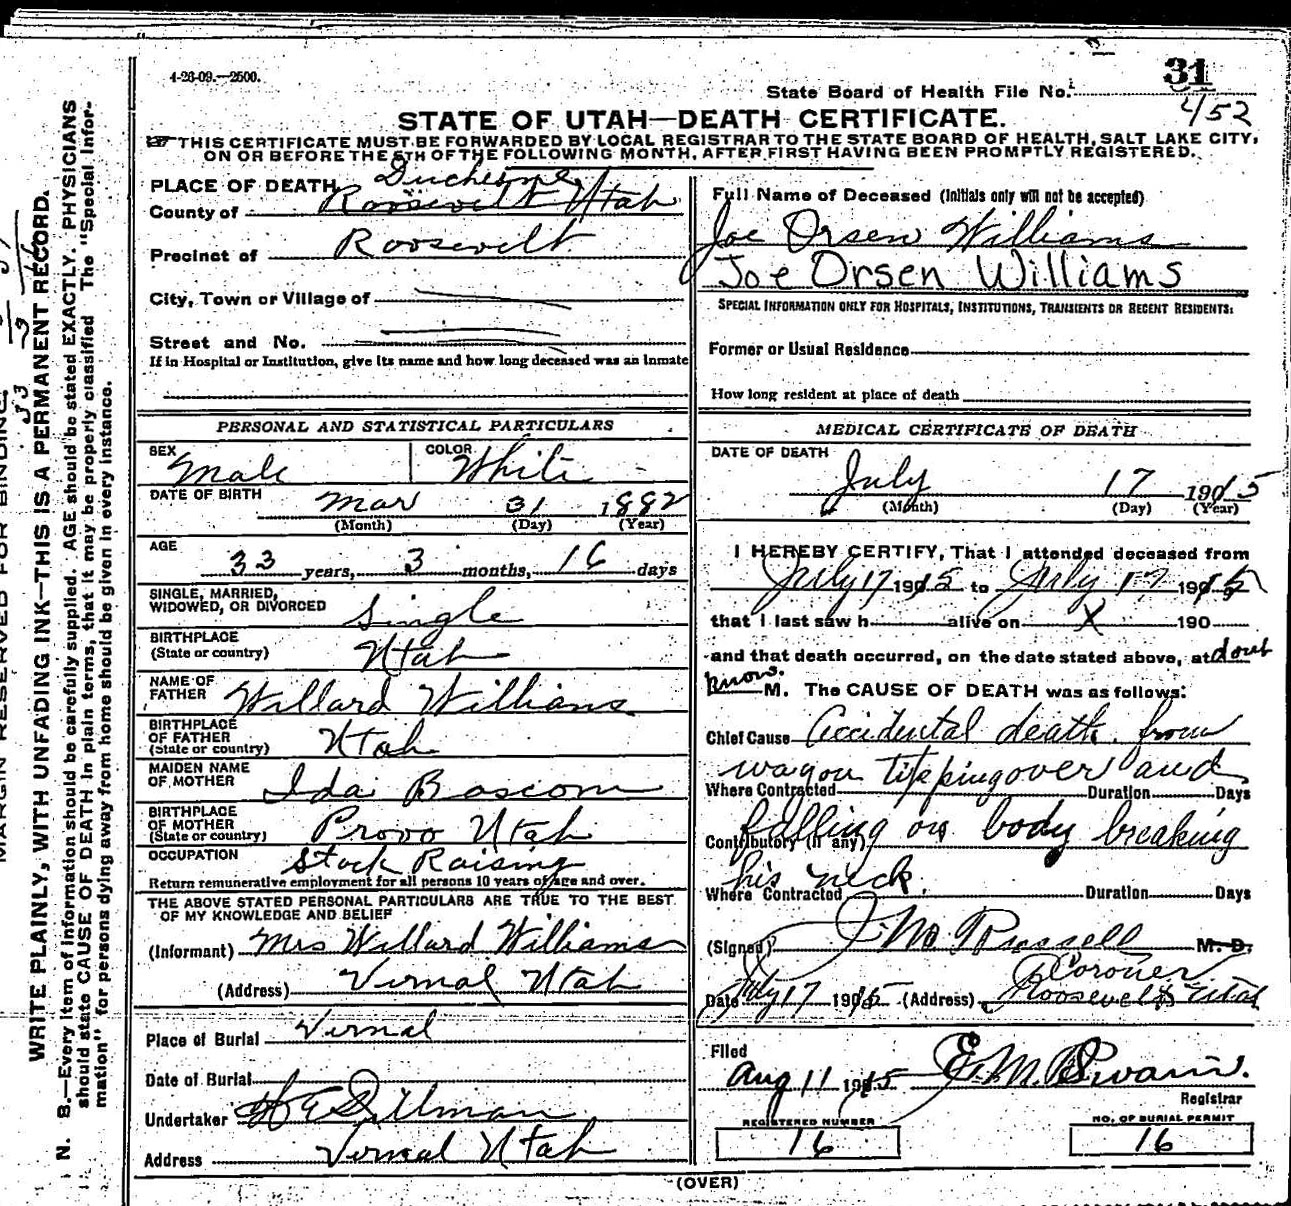 4-26-09.—2500.
31
State Board of Health File No.
452
STATE OF UTAH—DEATH CERTIFICATE.
THIS CERTIFICATE MUST BE FORWARDED BY LOCAL REGISTRAR TO THE STATE BOARD OF HEALTH, SALT LAKE CITY,
ON OR BEFORE THE 5TH OF THE FOLLOWING MONTH, AFTER FIRST HAVING BEEN PROMPTLY REGISTERED.
PLACE OF DEATH Duchesne
County of Roosevelt Utah
Precinct of Roosevelt
City, Town or Village of
Street and No.
If in Hospital or Institution, give its name and how long deceased was an inmate
PERSONAL AND STATISTICAL PARTICULARS
SEX Male COLOR White
DATE OF BIRTH Mar 31 1882
(Month) (Day) (Year)
AGE
33 years, 3 months, 16 days
SINGLE, MARRIED,
WIDOWED, OR DIVORCED Single
BIRTHPLACE
(State or country) Utah
NAME OF
FATHER Willard Williams
BIRTHPLACE
OF FATHER
(State or country) Utah
MAIDEN NAME
OF MOTHER Ida Bascom
BIRTHPLACE
OF MOTHER
(State or country) Provo Utah
OCCUPATION Stock Raising
Return remunerative employment for all persons 10 years of age and over.
THE ABOVE STATED PERSONAL PARTICULARS ARE TRUE TO THE BEST
OF MY KNOWLEDGE AND BELIEF
(Informant) Mrs Willard Williams
(Address) Vernal Utah
Place of Burial Vernal
Date of Burial
Undertaker Dillman
Address Vernal Utah
Full Name of Deceased (Initials only will not be accepted)
Joe Orsen Williams
Joe Orsen Williams
SPECIAL INFORMATION ONLY FOR HOSPITALS, INSTITUTIONS, TRANSIENTS OR RECENT RESIDENTS:
Former or Usual Residence
How long resident at place of death
MEDICAL CERTIFICATE OF DEATH
DATE OF DEATH
July 17 1915
(Month) (Day) (Year)
I HEREBY CERTIFY, That I attended deceased from
July 17 1915 to July 17 1915
that I last saw h alive on X 190
and that death occurred, on the date stated above, at dont
know. M. The CAUSE OF DEATH was as follows:
Chief Cause Accidental death from
wagon tipping over and
Where Contracted Duration Days
falling on body breaking
Contributory (if any)
his neck.
Where Contracted Duration Days
(Signed) J. M. Russell M. D.
Coroner
Date July 17 1915 (Address) Roosevelt Utah
Filed
Aug 11 1915 E. M. Swain.
Registrar
REGISTERED NUMBER
16
NO. OF BURIAL PERMIT
16
(OVER)
MARGIN RESERVED FOR BINDING.
WRITE PLAINLY, WITH UNFADING INK—THIS IS A PERMANENT RECORD.
N. B.—Every item of information should be carefully supplied. AGE should be stated EXACTLY. PHYSICIANS
should state CAUSE OF DEATH in plain terms, that it may be properly classified The "Special Infor-
mation" for persons dying away from home should be given in every instance.